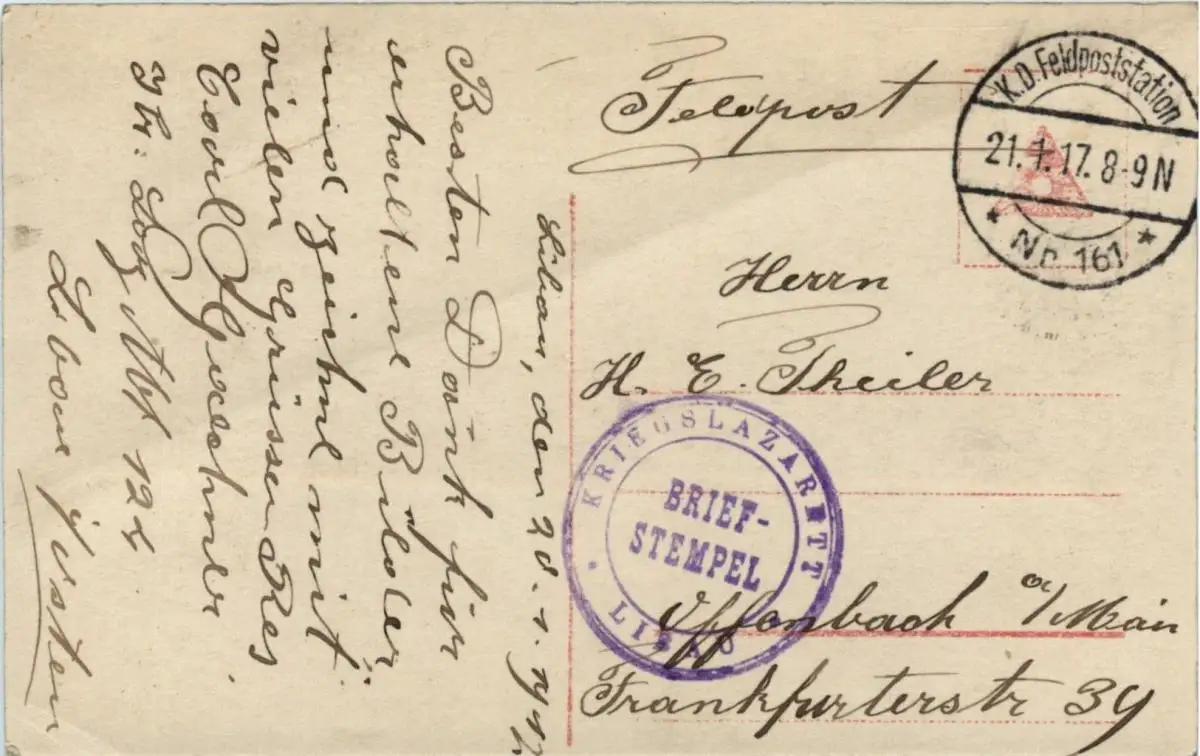 Feldpost
K.D. Feldpoststation
21.1.17. 8-9N
* Nr. 161 *
Herrn
H. E. Theiler
Offenbach a/Main
Frankfurterstr 39
KRIEGSLAZARETT
BRIEF-
STEMPEL
LIBAU
Libau, den 20. 1. 1917
Besten Dank für
erhaltene Bilder
und zeichne mit
vielen Grüssen
Carl
Abt
Libau